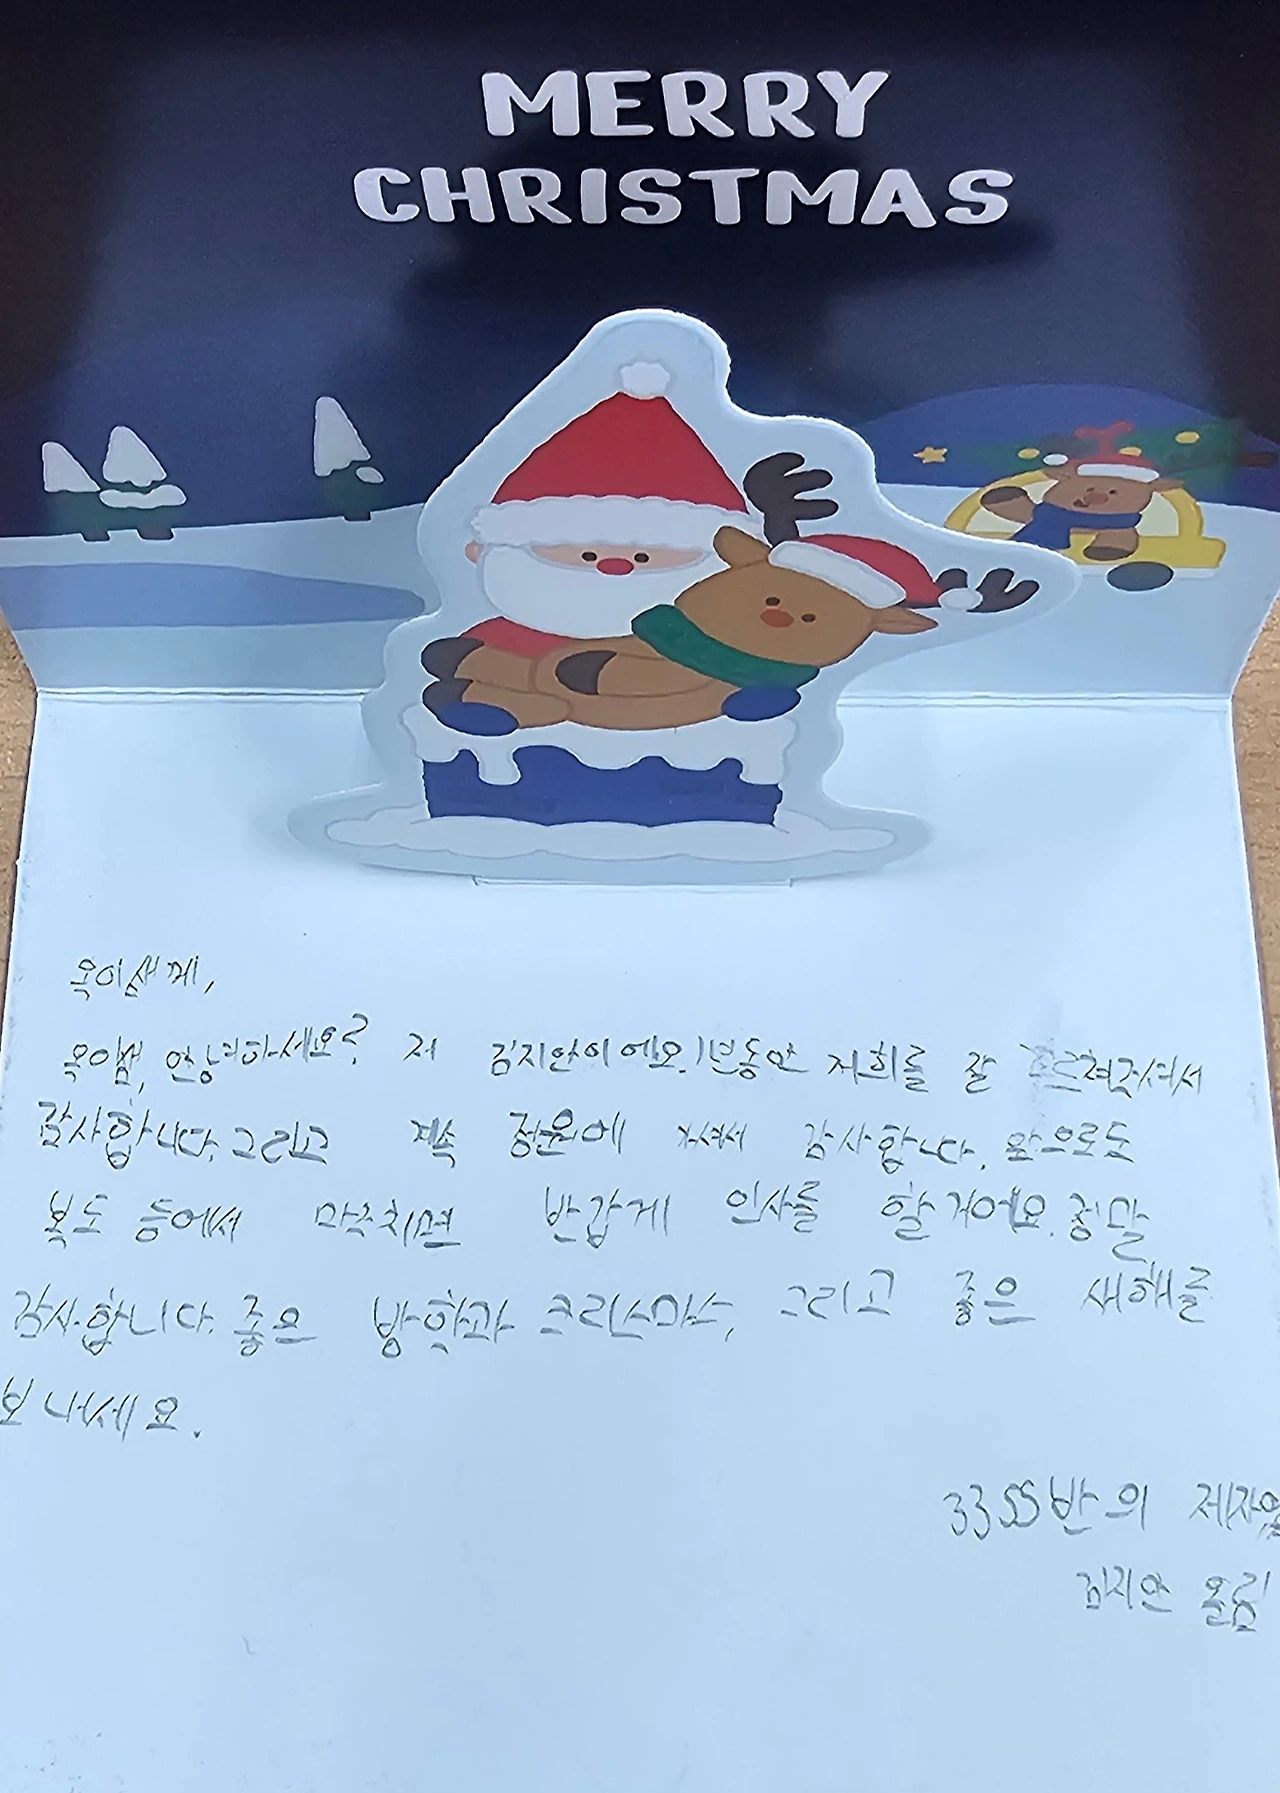 MERRY
CHRISTMAS
옥이샘께,
옥이쌤, 안녕하세요? 저 김지안이에요. 1년동안 저희를 잘
감사합니다. 그리고 계속 가셔서 감사합니다. 앞으로도
복도 등에서 마주치면 반갑게 인사를 할거에요. 정말
감사합니다. 좋은 방학과 크리스마스, 그리고 좋은 새해를
보내세요.
반의
김지안 올림